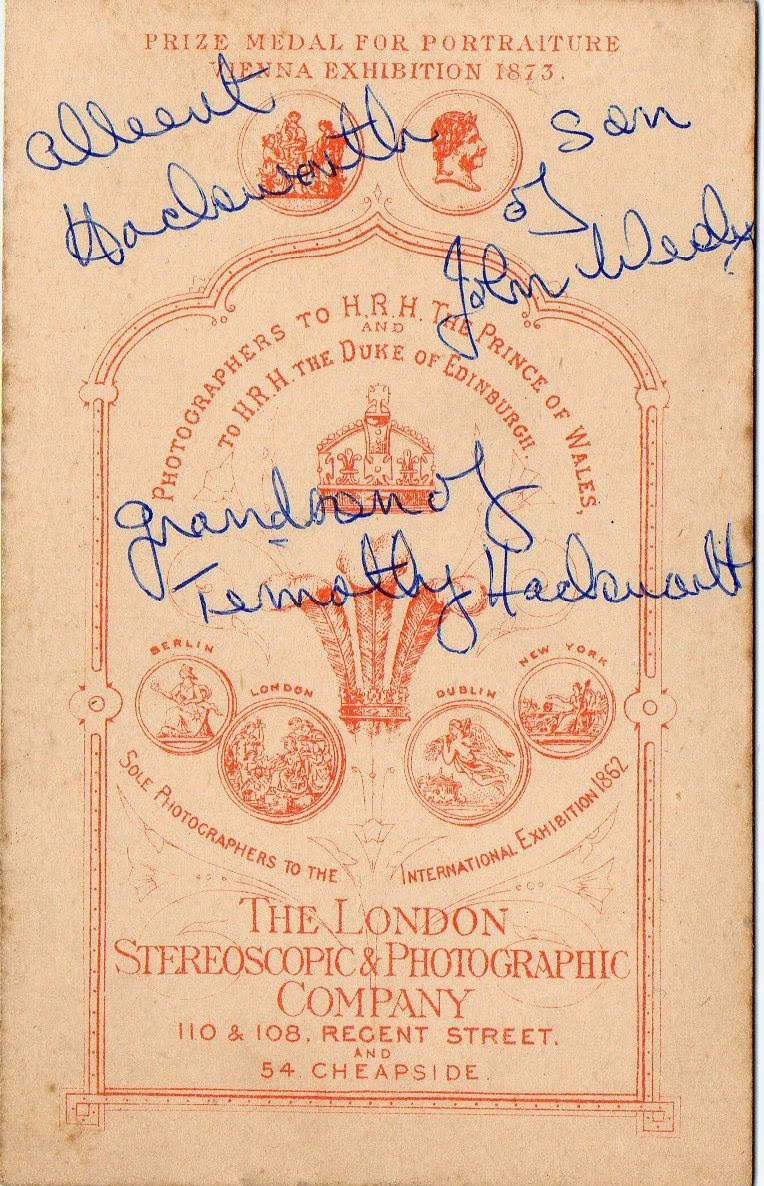 PRIZE MEDAL FOR PORTRAITURE
VIENNA EXHIBITION 1873.
Albert
Hackworth son
of
John Wesley
PHOTOGRAPHERS TO H.R.H. THE PRINCE OF WALES,
AND
TO H.R.H. THE DUKE OF EDINBURGH.
grandson of
Timothy Hackworth
BERLIN
LONDON
DUBLIN
NEW YORK
SOLE PHOTOGRAPHERS TO THE INTERNATIONAL EXHIBITION 1862
THE LONDON
STEREOSCOPIC & PHOTOGRAPHIC
COMPANY
110 & 108, REGENT STREET.
AND
54 CHEAPSIDE.